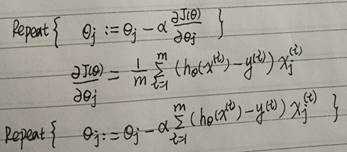 Repeat { θj := θj - α ∂J(θ)/∂θj }
∂J(θ)/∂θj = 1/m Σ_{t=1}^{m} (hθ(x^(t)) - y^(t)) xj^(t)
Repeat { θj := θj - α Σ_{t=1}^{m} (hθ(x^(t)) - y^(t)) xj^(t) }